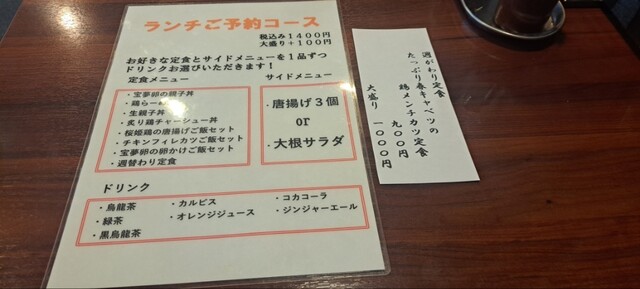 ランチご予約コース
税込み1400円
大盛り+100円
お好きな定食とサイドメニューを1品ずつ
ドリンクお選びいただきます！
定食メニュー
・宝夢卵の親子丼
・鶏らーめん
・生親子丼
・炙り鶏チャーシュー丼
・桜姫鶏の唐揚げご飯セット
・チキンフィレカツご飯セット
・宝夢卵の卵かけご飯セット
・週替わり定食
サイドメニュー
・唐揚げ3個
or
・大根サラダ
ドリンク
・烏龍茶
・緑茶
・黒烏龍茶
・カルピス
・オレンジジュース
・コカコーラ
・ジンジャーエール
週がわり定食
たっぷり春キャベツの
鶏メンチカツ定食
九〇〇円
大盛り 一〇〇〇円